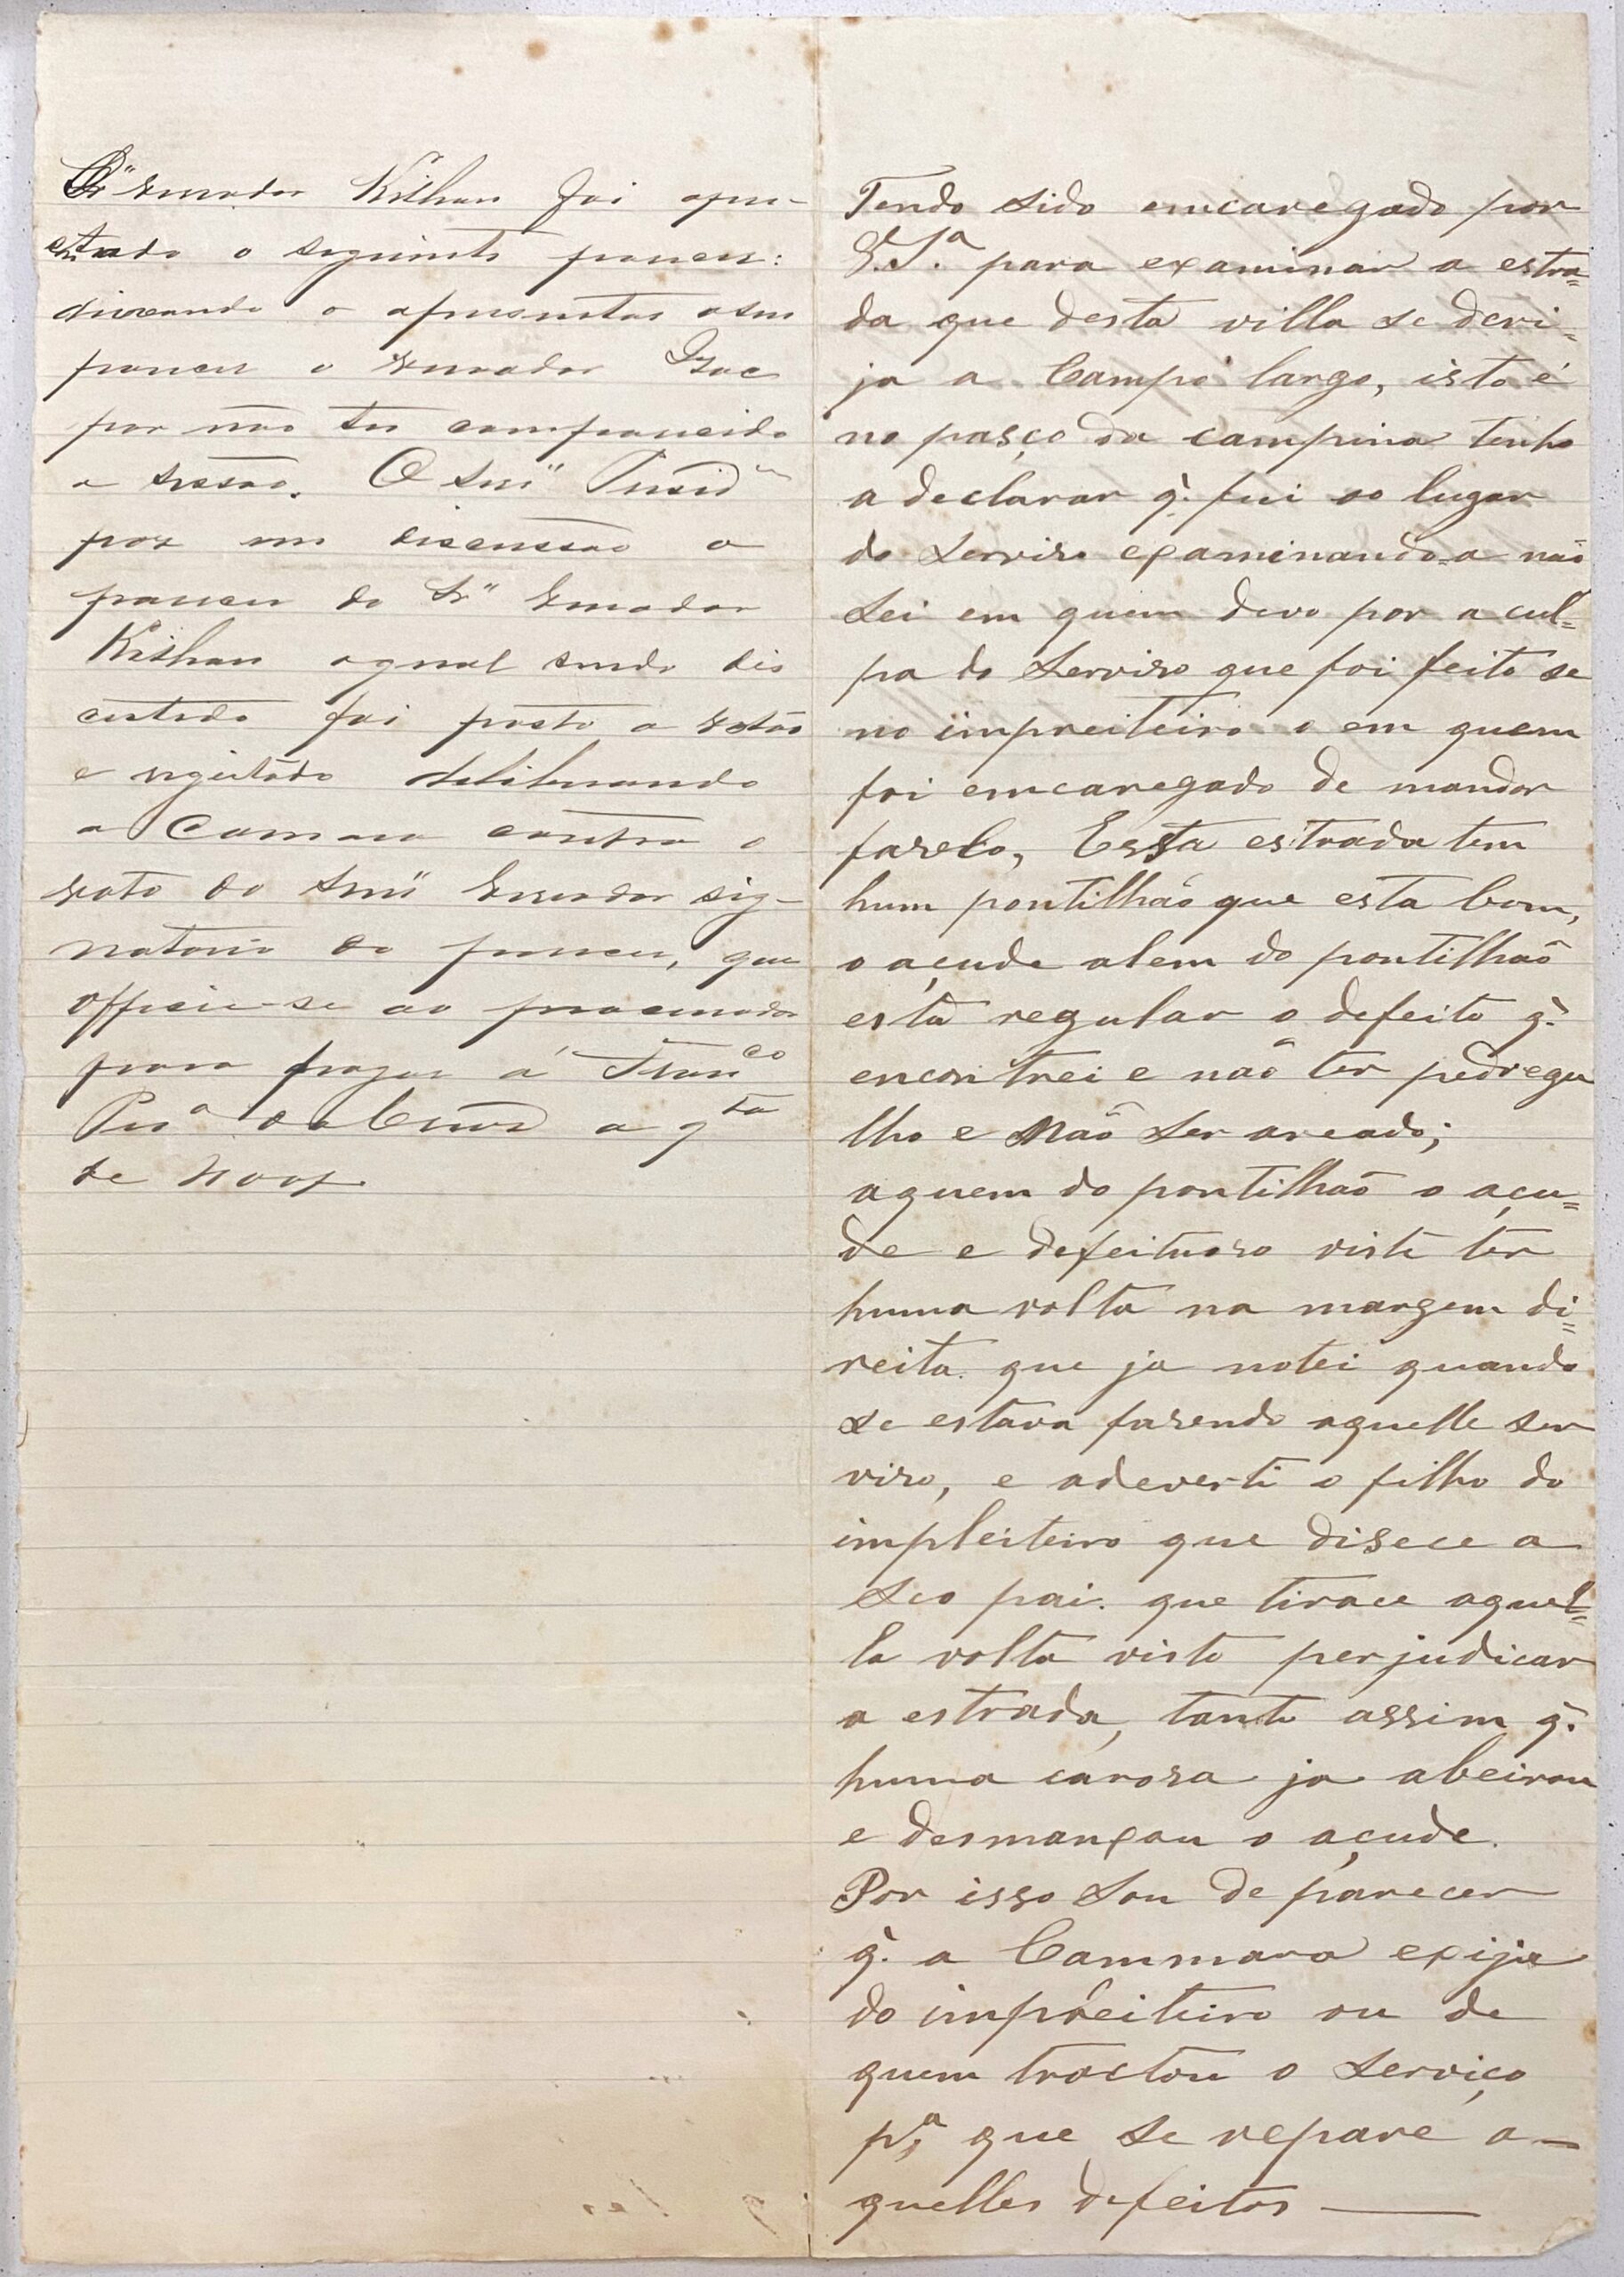 Sr" Vereador Kilhan foi apre-
sentado o seguinte parecer:
deixando o apresentar o seu
parecer o Vereador
por não ter comparecido
a sessão. O Snr" Presid
poz em discussão o
parecer do Sr" Vereador
Kilhan o qual sendo dis
cutido foi posto a votos
e regeitado deliberando
a Camara contra o
voto do Snr" Vereador sig-
natario do parecer, que
officie-se ao procurador
para pagar á Fran^co
Per^a da a q^ta
de
Tendo sido emcaregado por
V.S.ª para examinar a estra=
da que desta villa se deri=
ja a Campo largo, isto é
no pasço da campina tenho
a declarar q̃. fui ao lugar
do Serviso examinando=a não
Sei em quem devo por a cul=
pa do Serviso que foi feito se
no impreiteiro o em quem
foi emcaregado de mandar
faselo, Essta estrada tem
hum pontilhão que esta bom,
o açude alem do pontilhão
está regular o defeito q̃.
encontrei e não ter pedregu
lho e Não Ser areado;
aquem do pontilhão o açu=
de e defeituoso visto ter
huma volta na margem di=
reita. que ja notei quando
se estava fasendo aquelle ser
viso, e adeverti o filho do
impleiteiro que disece a
Seo pai. que tirace aquel=
la volta visto perjudicar
a estrada, tanto assim q̃.
huma carosa ja abeirou
e desmanxou o açude.
Por isso Sou de parecer
q̃. a Cammara exija
do impreiteiro ou de
quem tractou o Serviço
p.ª que se repare a—
quelles defeitos —